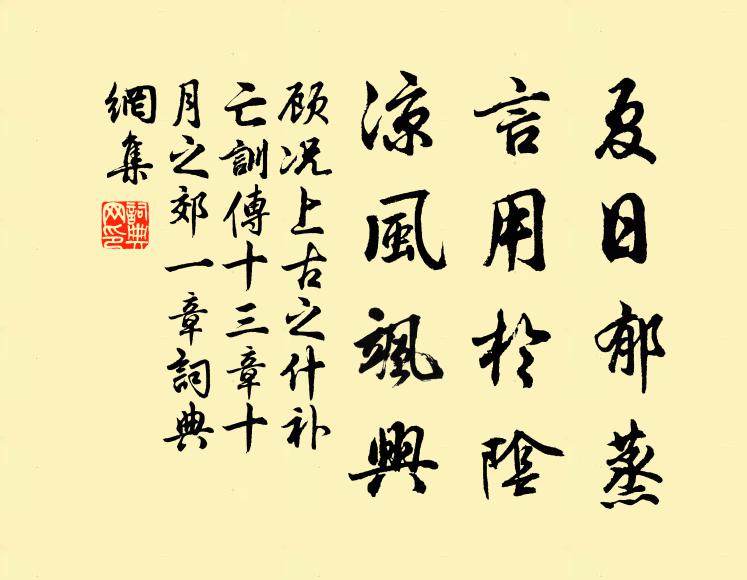 夏日郁蒸
言用於陰
凉風颯興
顾况上古之什补
亡訓傳十三章十
月之郊一章詞典
網集
詞典
网印